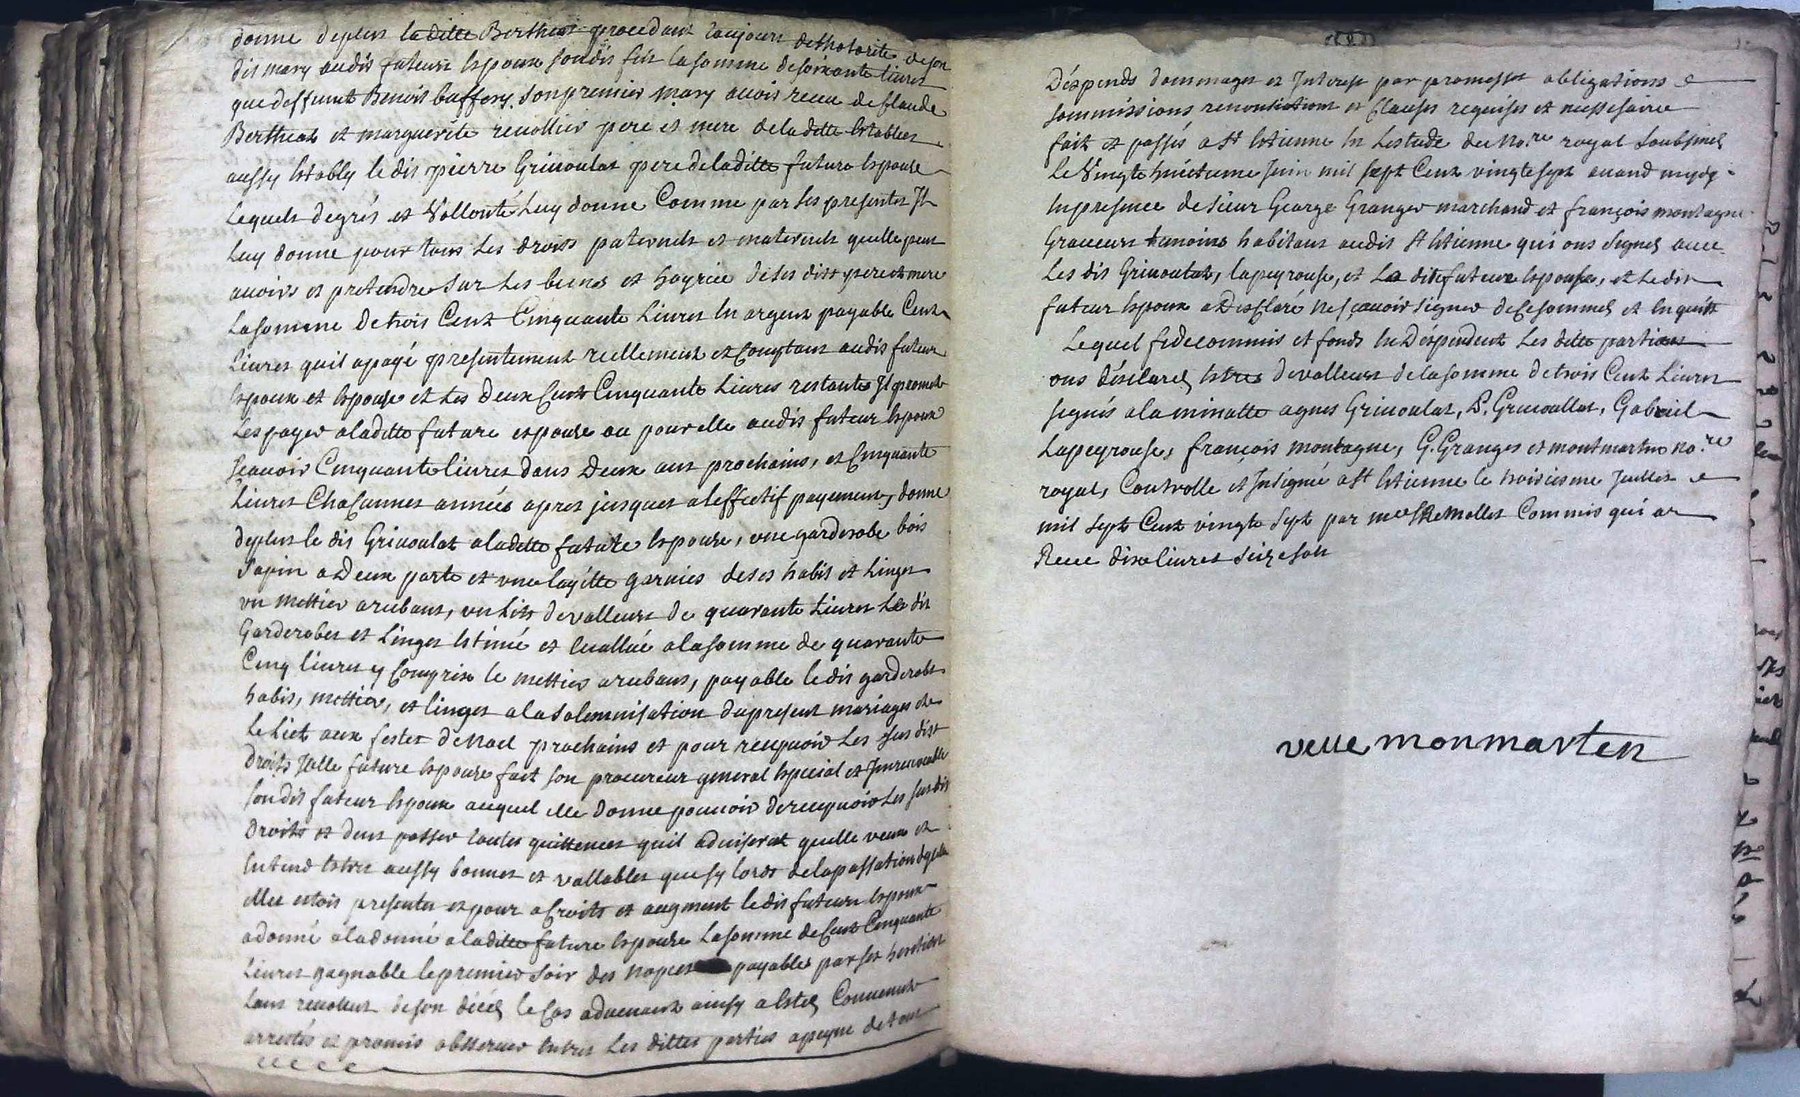 donne deplus ladille Bertheas procedant toujours delhotorité deson
dit mary audit futeur Espoux sondit fils la somme desoixante livres
que deffunt Benoit baffery son premier mary avoit receu de Claude
Bertheas et marguerite revollier pere et mere deladitte Establies
aussy Estably le dit pierre Grivoulat pere deladitte future Espouse
Lequels degrés et Vollonté Luy donne Comme par Ses presentes Il
Luy donne pour tous Les droits paternels et maternels quelle peut
avoir et pretendre Sur Les biens et hoyrie deses dits pere et mere
Lasomme detrois Cent Cinquante Livres En argent payable Cent
Livres quil apayé presentement reellement et Comptant audit futeur
Espoux et Espouse et Les deux Cent Cinquante Livres restantes Il promet
Les payer aladitte future espouse ou pour elle audit futeur Espoux
Scavoir Cinquante livres dans Deux ans prochains, et Cinquante
Livres ChaCunnes année apres jusques aleffectif payement, donne
deplus le dit Grivoulat aladitte future Espouse, une garderobe bois
Sapin a Deux porte et une layette garnies deses habit et Linges
un mettier arubans, un Lits devalleur de quarante Livres Le dit
Garderobes et Linges Estimé et Evallué alasomme de quarante
Cinq livres y Compris le mettier arubans, payable ledit garderobe
habis, mettier, et linges ala Solemnisation dupresent mariages et
Le Liet aux festes de Noel prochains et pour recepvoir Les Sus dist
droits Jcelle future Espouse fait son procureur general Especial et Jnrevocable
Sondit futeur Espoux auquel elle donne pouvoir derecepvoir Les susdit
Droits et dens passer toutes quittences quil adviserat quelle veux et
Entend Estre aussy bonnes et vallables que sy lords delapassation dycelles
elle estoit presentes et pour aCroits et augment ledit futeur Espoux
adonné aladonné aladitte future Espouse Lasomme deCent Cinquante
Livres gagnable lepremier Soir des nopces payables par ses heritiers
Sans de son décés le Cas advenant ainsy a Estés Convenus
arrestés et promis observer Entres Les dittes parties apeyne detous
Déspends dommages et Interest par promesses obligations et
Sommissions renontiations et Clauses requises et nessesaires
fait et passés a St Etienne En Lestude du No.re royal Soubsinés
Le Vingthuictieme Juin mil Sept Cent vingtesept avand mydy
Enpresence de Sieur George Granger marchand et françois montagne
Graveurs temoins habitans audit St Etienne qui ons Signés avec
Les dit Grivoulat, lapeyrouse, et La dite future Espouse, et Ledit
futeur Espoux a Desclaré Nescavoir Signer deCesommés et Enquist
Lequel fidecommis et fonds En Déspendent Les ditte parties
ons désclarés Estres devalleur delasomme detrois Cent Livres
Signés alaminutte agnes Grivoulat, P. Grivoullat, Gabriel
Lapeyrouse, françois montagne, G. Granges et montmartin no.re
royal, Controlle et Insignué a St Etienne le troisiesme Juillet
mil Sept Cent vingte Sept par mre Commis qui at
Receu dixe livres Seize sols
veue monmarten